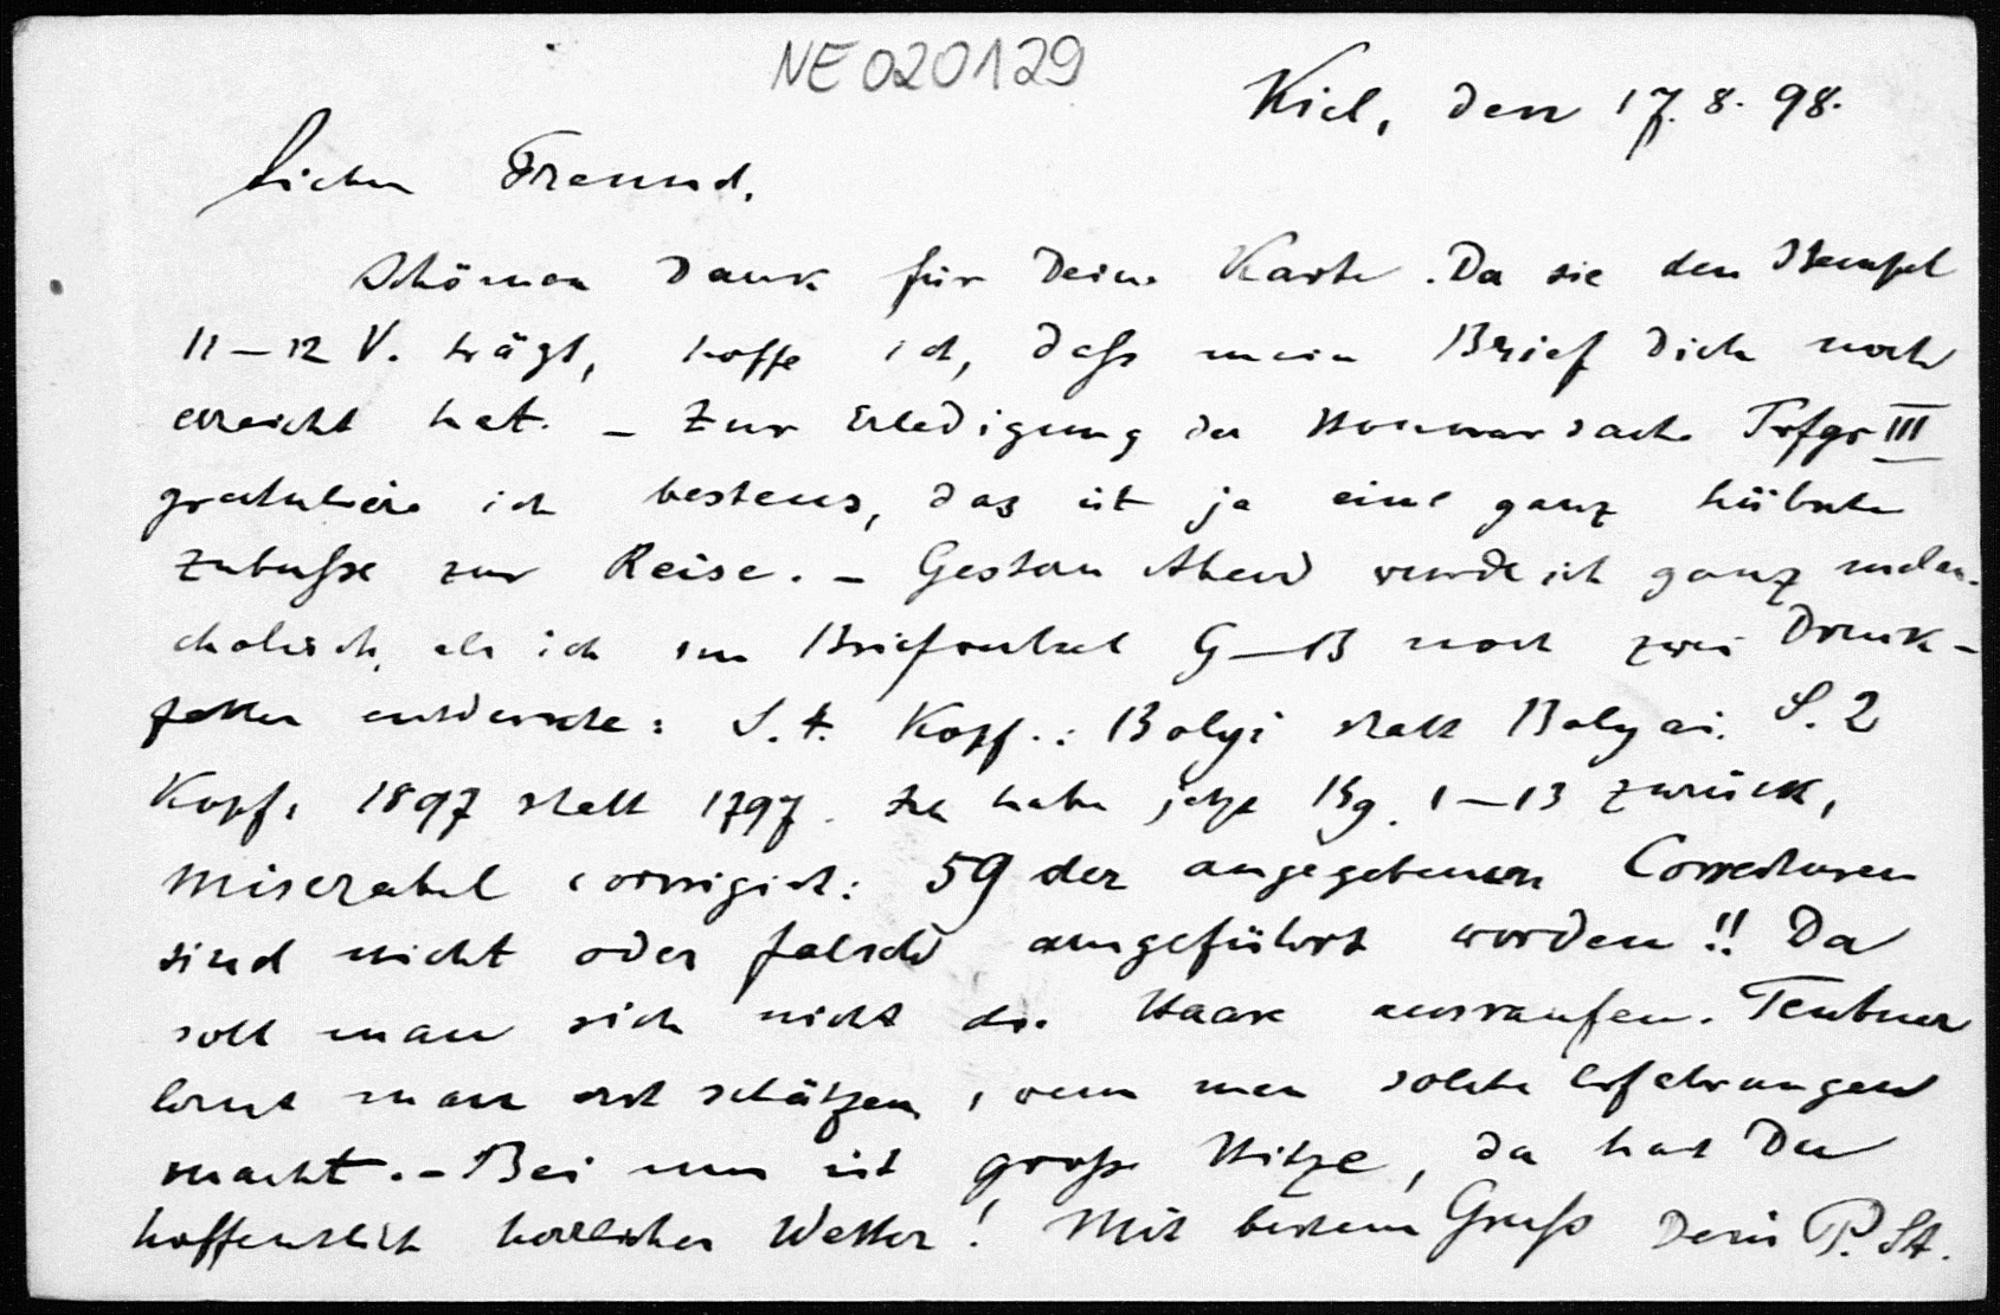 NE020129
Kiel, den 17. 8. 98.
Lieber Freund,
Schönen Dank für Deine Karte. Da sie den Stempel
11–12 V. trägt, hoffe ich, dass mein Brief Dich noch
erreicht hat. – Zur Erledigung der Honorarsache Trfgr III
gratuliere ich bestens, das ist ja eine ganz hübsche
Zubusse zur Reise. – Gestern Abend wurde ich ganz melan-
cholisch, als ich im Briefwechsel G–B noch zwei Druck-
fehler entdeckte: S. 1. Kopf.: Bolyi statt Bolyai. S. 2
Kopf, 1897 statt 1797. Ich habe jetzt Bg. 1–13 zurück,
miserabel corrigirt: 59 der angegebenen Correcturen
sind nicht oder falsch ausgeführt worden!! Da
soll man sich nicht die Haare ausraufen. Teubner
lernt man erst schätzen, wenn man solche Erfahrungen
macht. – Bei uns ist grosse Hitze, da hast Du
hoffentlich herrliches Wetter! Mit bestem Gruss Dein P. St.